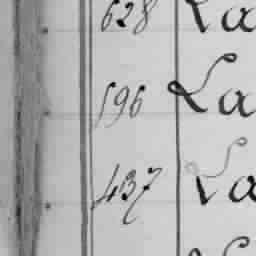 628 La
596 La
437 La